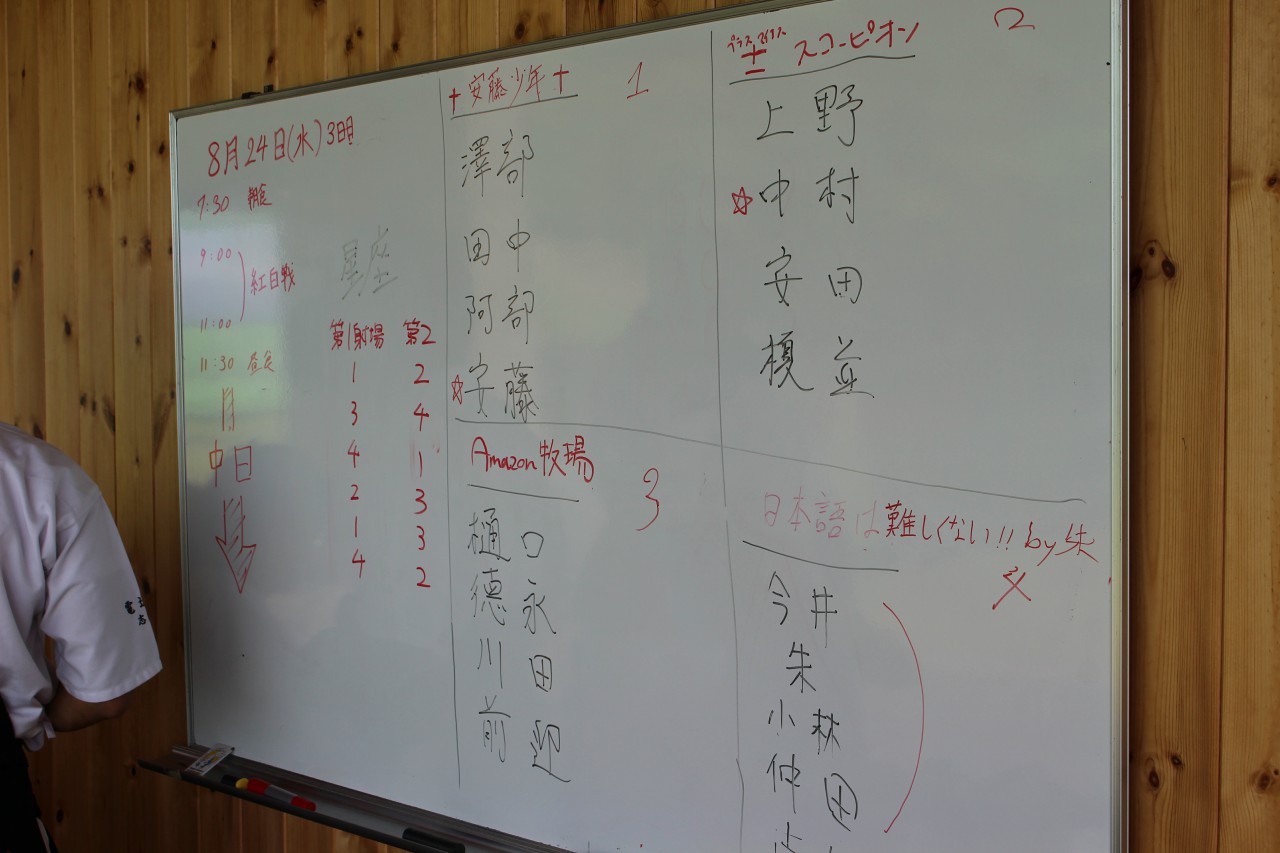 8月24日(水)3日目
7:30 朝食
9:00
紅白戦
11:00
11:30 昼食
中日
星座
第1射場 第2
1 2
3 4
4 1
2 3
1 3
4 2
+安藤少年+ 1
澤部
田中
阿部
☆安藤
プラスマイナス
± スコーピオン 2
上野
☆中村
安田
榎並
Amazon牧場 3
樋口
徳永
川田
前迎
日本語は難しくない!! by朱
今井
朱
小林
仲田